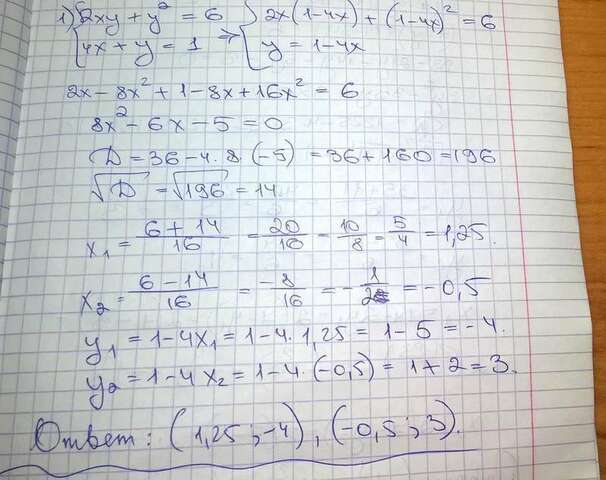 1) { 2xy + y² = 6 => { 2x(1-4x) + (1-4x)² = 6
{ 4x + y = 1 { y = 1-4x
2x - 8x² + 1 - 8x + 16x² = 6
8x² - 6x - 5 = 0
D = 36 - 4 · 8 · (-5) = 36 + 160 = 196
√D = √196 = 14
x₁ = (6 + 14)/16 = 20/16 = 10/8 = 5/4 = 1,25.
x₂ = (6 - 14)/16 = -8/16 = -1/2 = -0,5
y₁ = 1 - 4x₁ = 1 - 4 · 1,25 = 1 - 5 = -4.
y₂ = 1 - 4x₂ = 1 - 4 · (-0,5) = 1 + 2 = 3.
Ответ: (1,25 ; -4), (-0,5 ; 3).